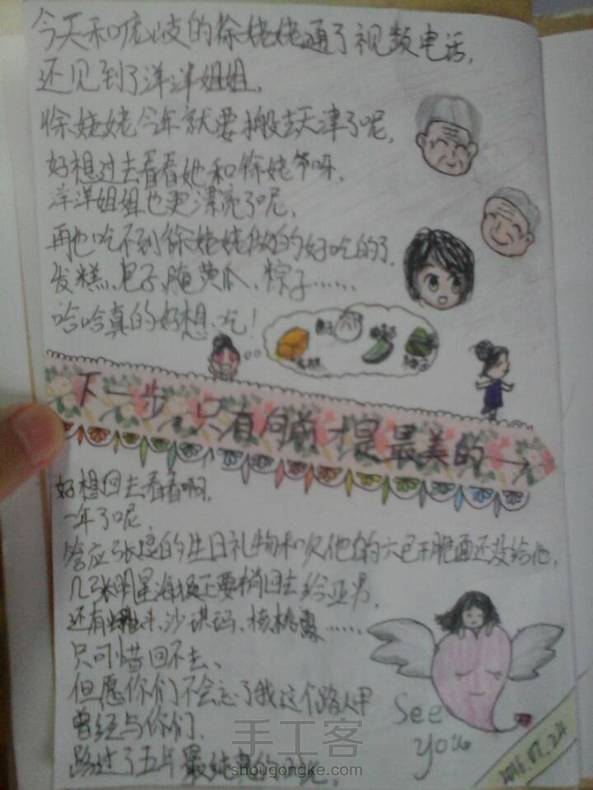 今天和 的徐姥姥通了视频电话,
还见到了洋洋姐姐.
徐姥姥今年就要搬去天津了呢,
好想过去看看她和徐姥爷呀.
洋洋姐姐也更漂亮了呢.
再也吃不到徐姥姥做的好吃的了.
发糕、包子、腌黄瓜、粽子……
哈哈真的好想吃!
下一步,只有向前才是最美的→
好想回去看看啊.
一年了呢.
答应 的生日礼物和欠他的六 还没给他,
几张明星海报还要捎回去给亚男.
还有 、沙琪玛、核桃露……
只可惜回不去、
但愿你们不会忘了我这个路人甲
曾经与你们、
路过了五年最纯真的 .
See
you
2016.07.24
手工客
shougongke.com